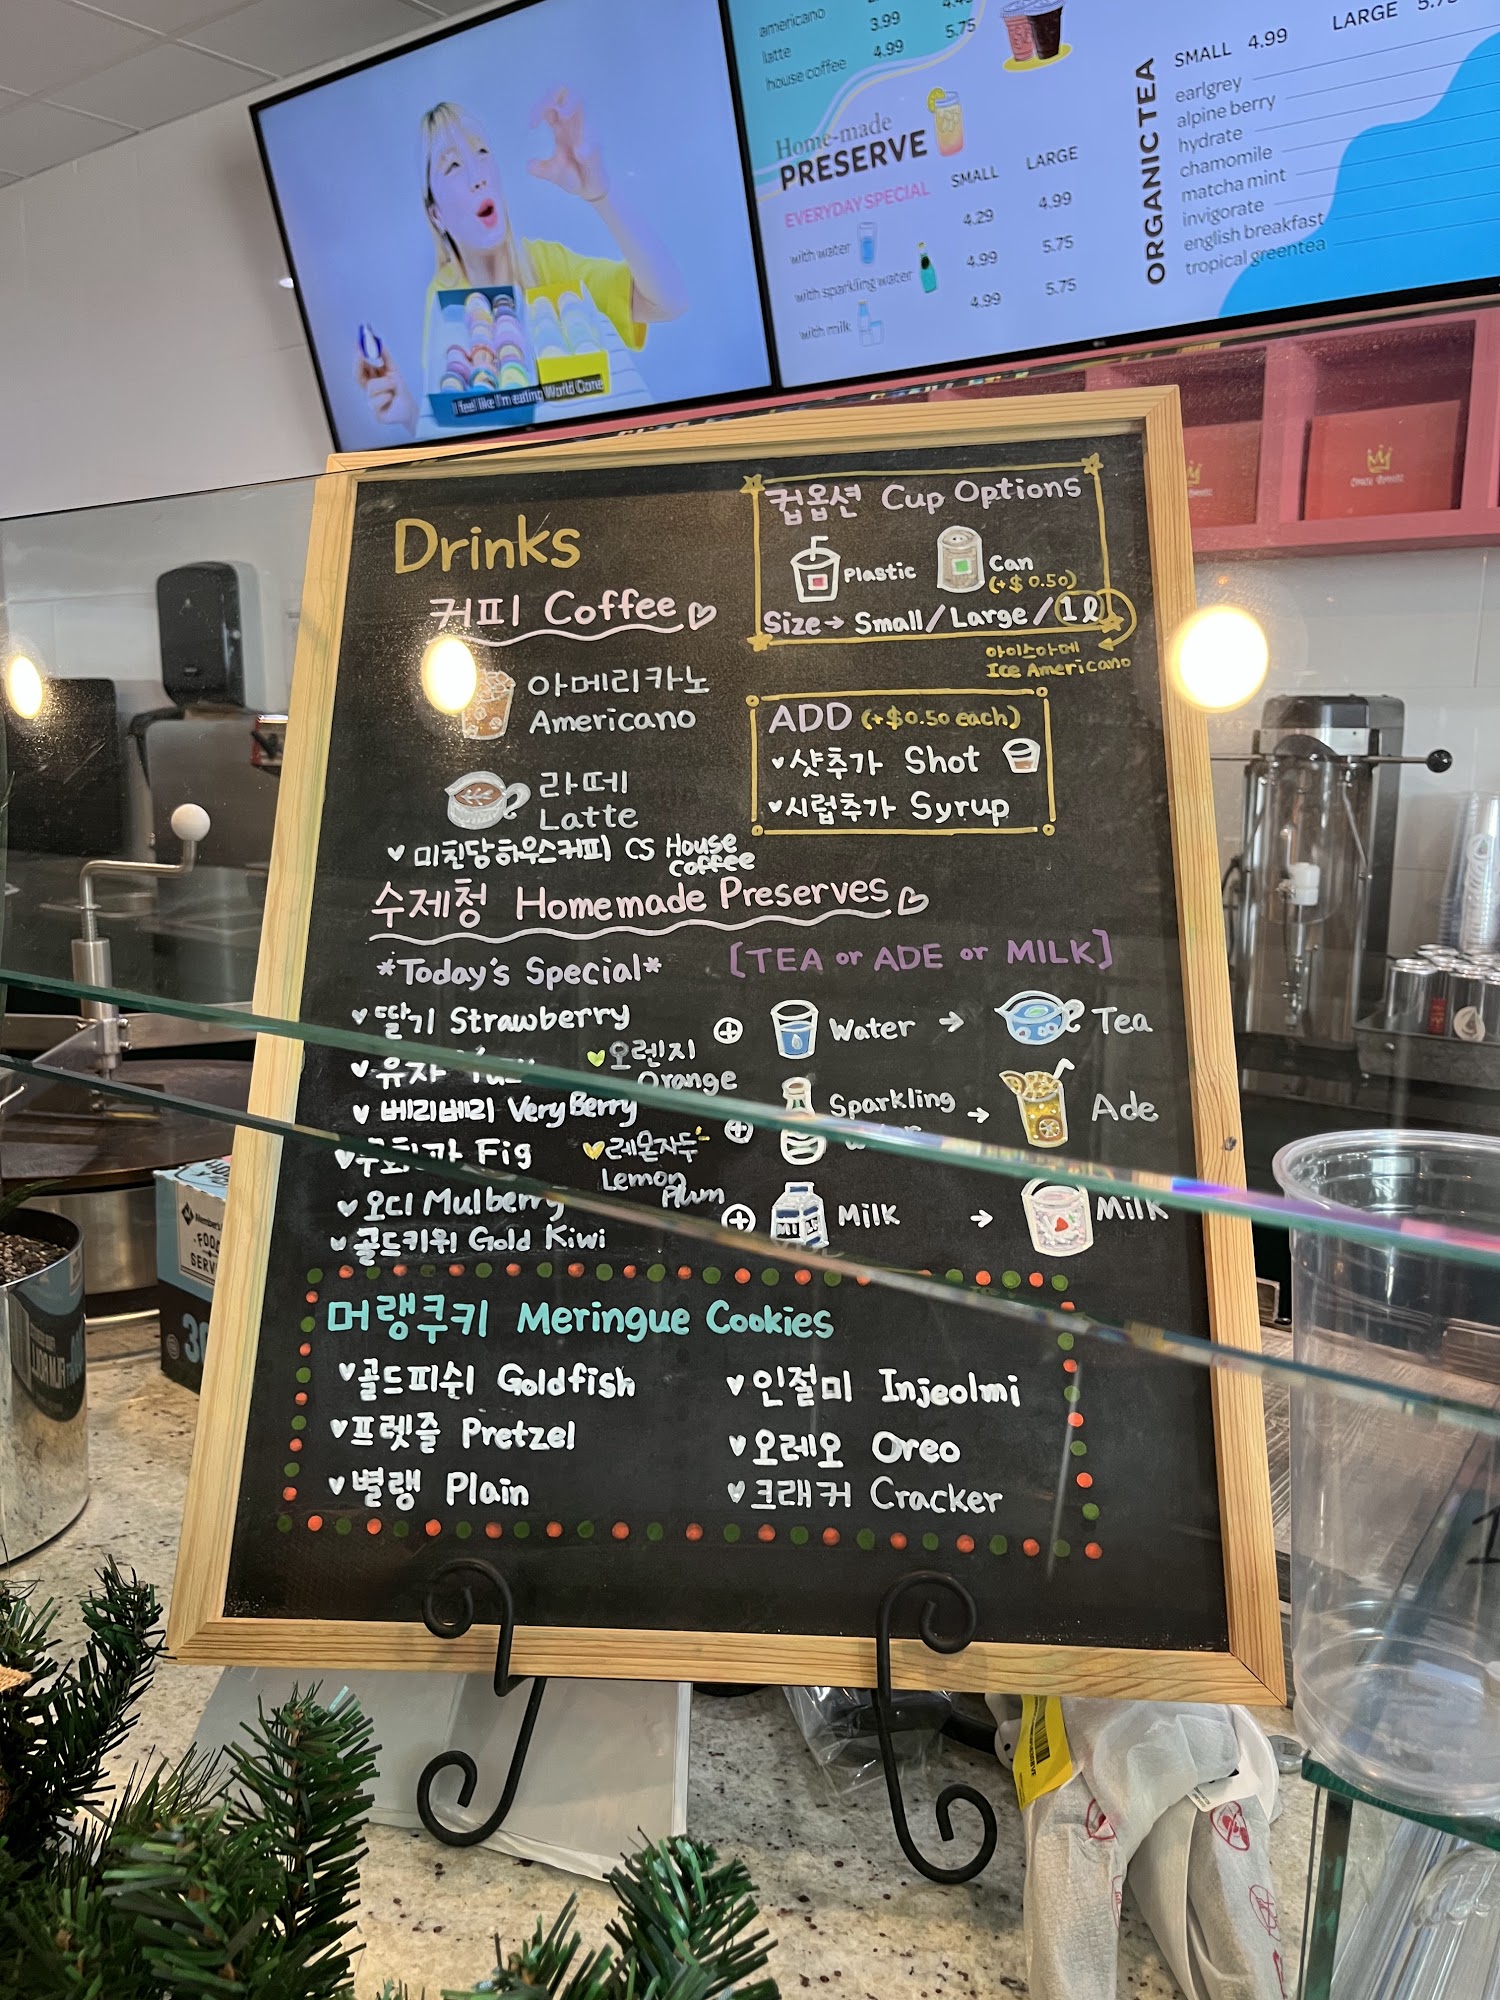 americano 3.99
latte 4.99 5.75
house coffee
Home-made
PRESERVE
EVERYDAY SPECIAL SMALL LARGE
with water 4.29 4.99
with sparkling water 4.99 5.75
with milk 4.99 5.75
ORGANIC TEA
SMALL 4.99 LARGE
earlgrey
alpine berry
hydrate
chamomile
matcha mint
invigorate
english breakfast
tropical greentea
I feel like I'm eating World Cone
Drinks
커피 Coffee
아메리카노
Americano
라떼
Latte
미친당하우스커피 CS House
Coffee
컵옵션 Cup Options
Plastic
Can
(+$0.50)
Size → Small/Large/1ℓ
아이스아메
Ice Americano
ADD (+$0.50 each)
샷추가 Shot
시럽추가 Syrup
수제청 Homemade Preserves
*Today's Special*
딸기 Strawberry
유자
오렌지
Orange
베리베리 Very Berry
Fig
레몬자두
Lemon
Plum
오디 Mulberry
골드키위 Gold Kiwi
[TEA or ADE or MILK]
+ Water → Tea
+ Sparkling → Ade
+ MILK Milk → Milk
머랭쿠키 Meringue Cookies
골드피쉬 Goldfish
프렛즐 Pretzel
별랭 Plain
인절미 Injeolmi
오레오 Oreo
크래커 Cracker
Member's
FOOD
SERV